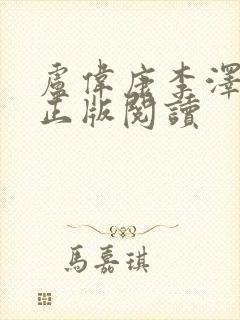 盧偉康李澤
正版閱讀
馬嘉琪